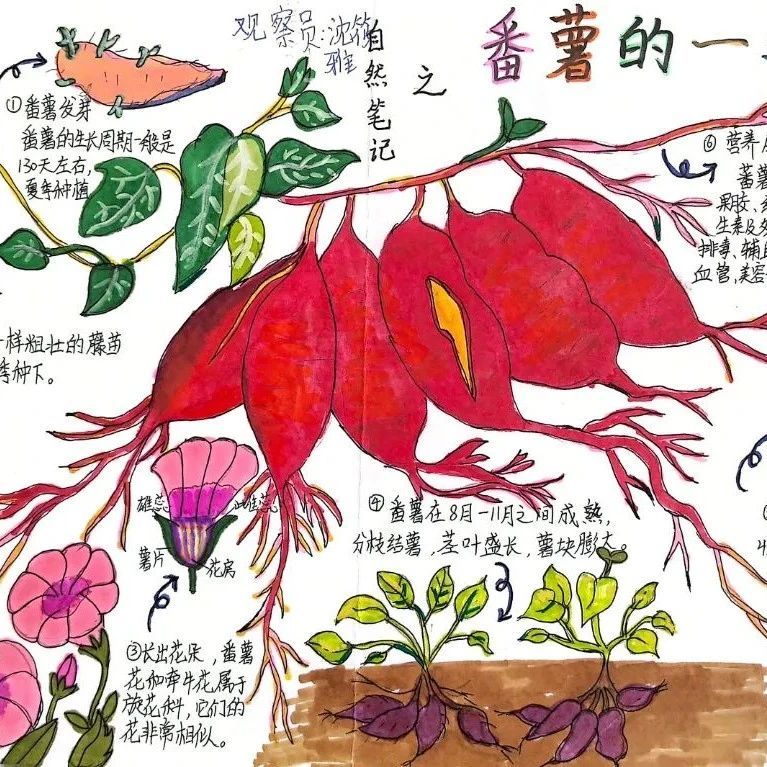 观察员:沈筱
雅
自然笔记
之
番薯的一
①番薯发芽
番薯的生长周期一般是
130天左右,
夏季种植
一样粗壮的藤苗
季种下。
③长出花朵,番薯
花和牵牛花属于
旋花科,它们的
花非常相似。
雄蕊
雌蕊
薯片
花房
④番薯在8月-11月之间成熟,
分枝结薯,茎叶盛长,薯块膨大。
⑥营养
番薯
果胶、
生素及
排毒、辅
血管,美容